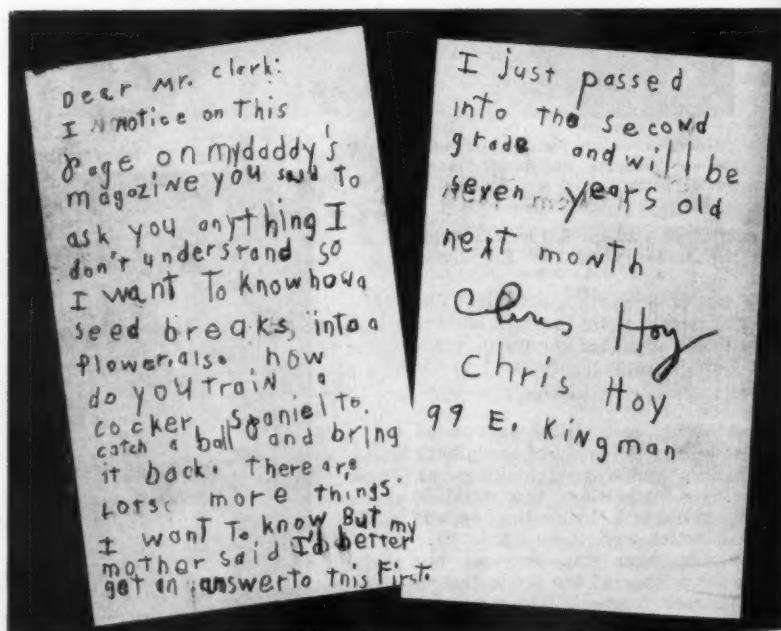 Dear Mr. Clark:
I notice on This
Page on mydaddy's
magazine you said to
ask you anything I
don't understand so
I want To know howa
seed breaks, into a
flower. also how
do you train a
cocker, Spaniel to.
catch a ball and bring
it back. there are
Lotsc more things.
I want To know But my
mother said I'd better
get an answer to this First.
I just passed
into the second
grade and will be
seven years old
next month
Chris Hoy
Chris Hoy
99 E. Kingman